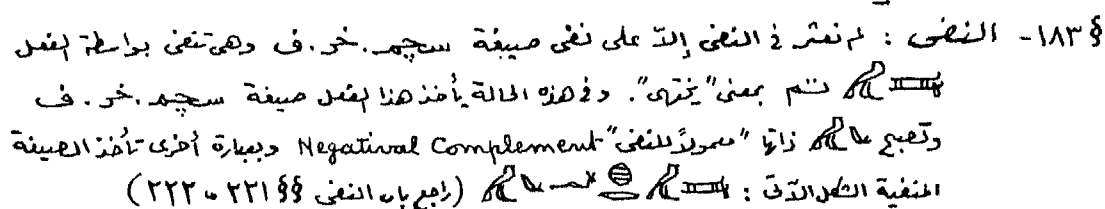 § ١٨٣- النفى : لم نعثر فى النفى إلا على نفى صيغة سچم.خر.ف وهى تنفى بواسطة الفعل
تم بمعنى "ينتهى". وفى هذه الحالة يأخذ هذا الفعل صيغة سچم.خر.ف
وتصبح ذاتها "معمولاً للنفى" Negatival Complement وبعبارة أخرى تأخذ الصيغة
المنفية الشكل الآتى : (راجع باب النفى §§ ٢٢١، ٢٢٢)